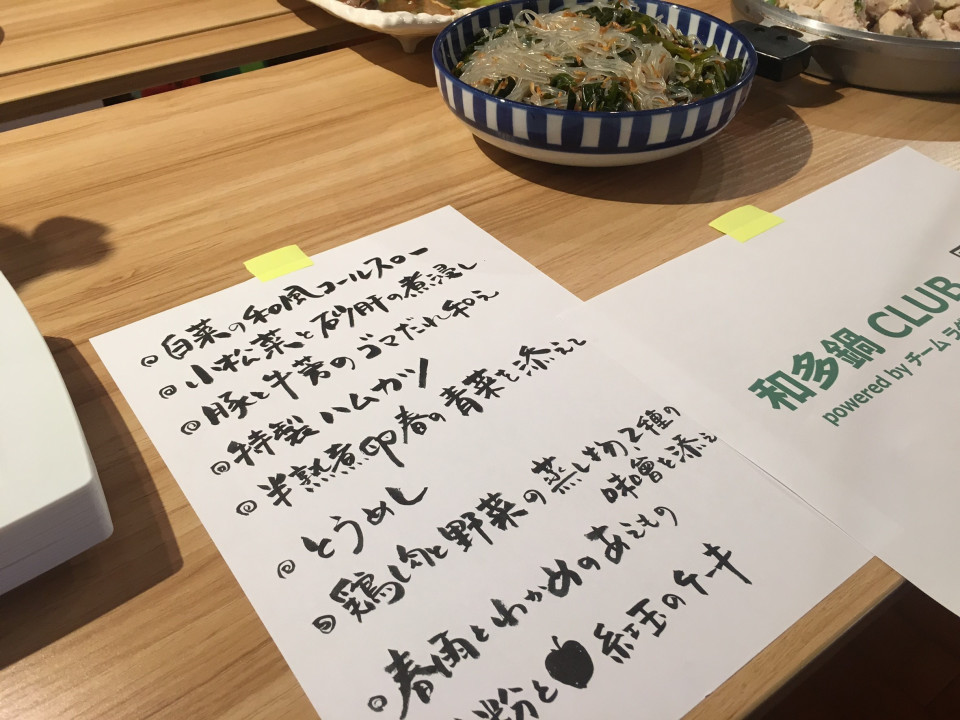 白菜の和風コールスロー
小松菜と砂肝の煮浸し
豚と牛蒡のゴマだれ和え
特製ハムカツ
半熟煮卵春の青菜を添えて
とうめし
鶏肉と野菜の蒸し物、2種の
味噌を添え
春雨とわかめのあえもの
粉と紅玉のケーキ
和多鍋 CLUB
powered by チーム